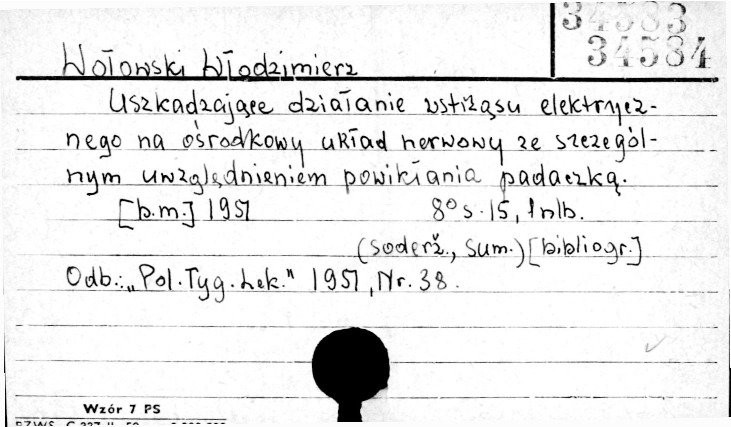 34583
34584
Wołowski Włodzimierz
Uszkadzające działanie wstrząsu elektrycz-
nego na ośrodkowy układ nerwowy ze szczegól-
nym uwzględnieniem powikłania padaczką.
[b.m.] 1951 8° s. 15, 1 nlb.
(soderž., sum.) [bibliogr.]
Odb.: „Pol. Tyg. Lek." 1951, Nr. 38.
Wzór 7 PS